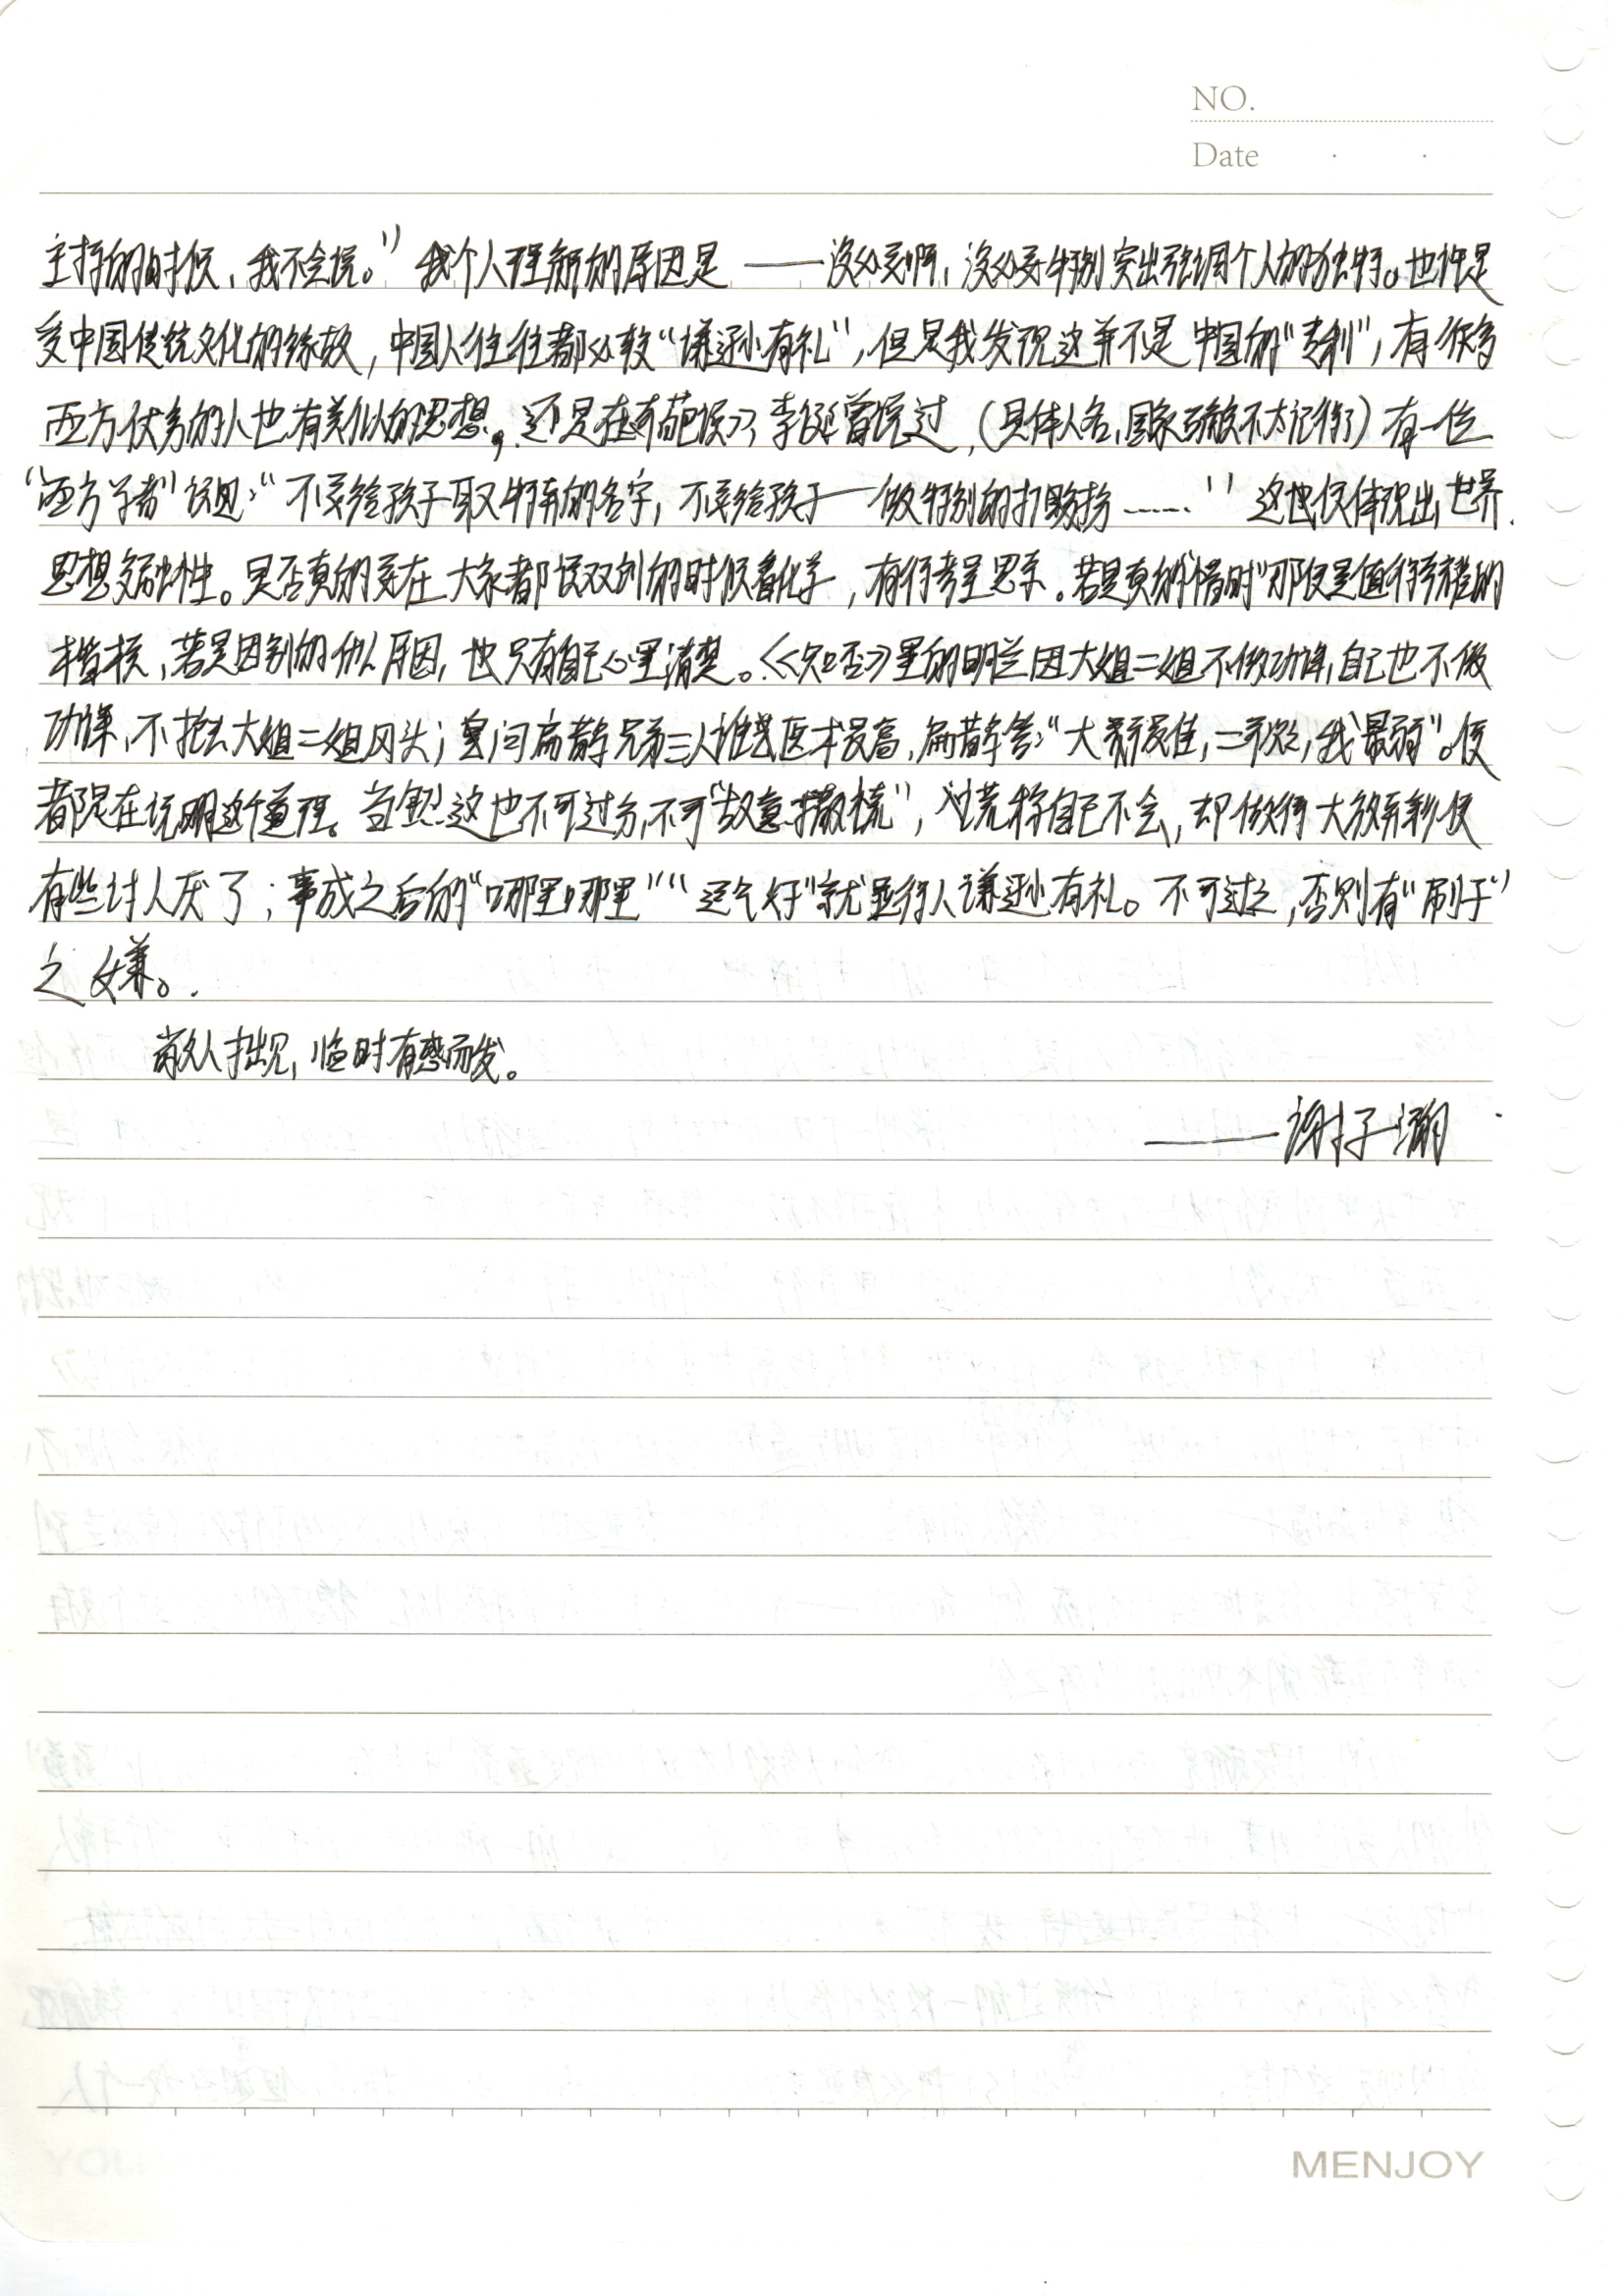 NO.
Date
主持的时候，我不会说。” 我个人理解的原因是——没必要啊，没必要特别突出强调个人的独特。也许是
受中国传统文化的缘故，中国人往往都比较“谦逊有礼”，但是我发现这并不是中国的“专利”，有很多
西方优秀的人也有类似的思想。还是在，李诞曾说过，（具体人名，国家不太记得了）有一位
“西方学者”说过：“不要给孩子取特殊的名字，不要给孩子做特别的打扮……” 这也仅体现出世界
思想交融性。是否真的要在大家都说双创的时候看化学，有待考量思索。若是真的“惜时”那便是值得称赞的
楷模，若是因别的什么原因，也只有自己心里清楚。《知否》里的明兰因大姐二姐不做功课，自己也不做
功课，不抢去大姐二姐风头；皇问扁鹊兄弟三人谁医术最高，扁鹊答：“大哥最佳，二哥次之，我最弱”。便
都是在说明这个道理。当然这也不可过分，不可“故意撒谎”，谎称自己不会，却做得大放异彩便
有些讨人厌了；事成之后的“哪里哪里”“运气好”就显得人谦逊有礼。不可过之，否则有“刷子”
之嫌。
敝人拙见，临时有感而发。
——谢子
MENJOY